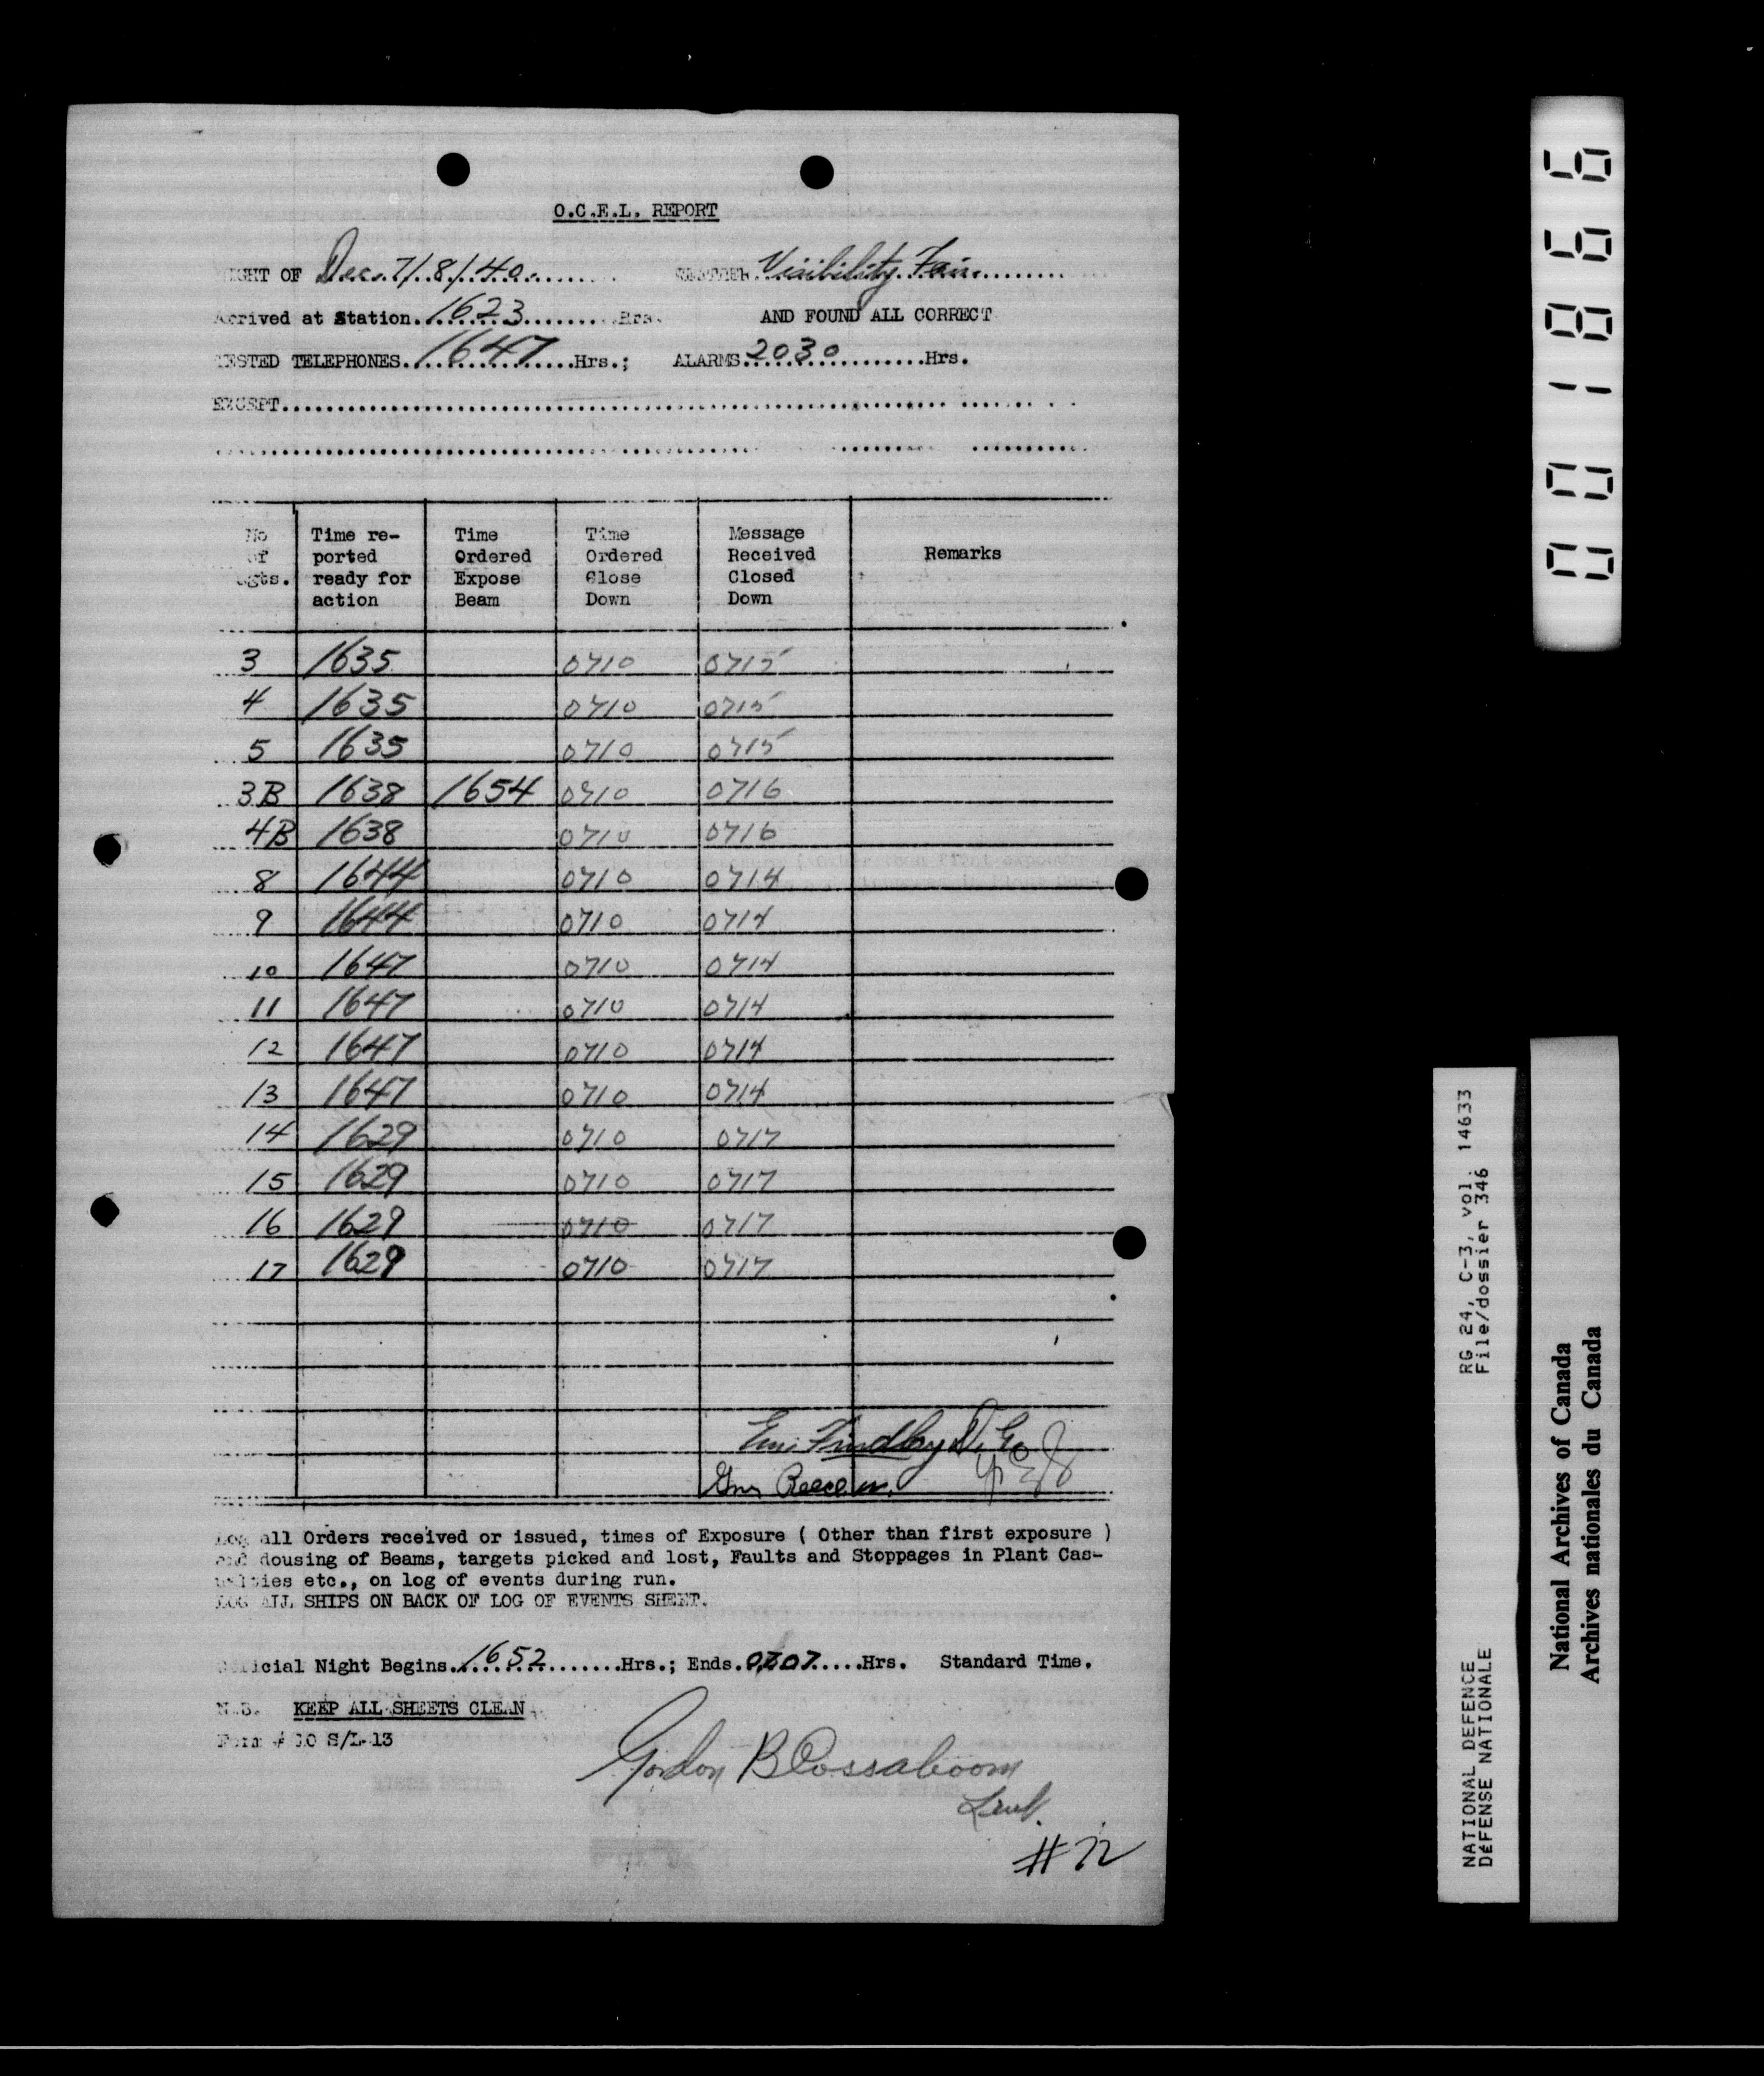 O.C.E.L. REPORT
NIGHT OF Dec. 7/8/40 WEATHER Visibility Fair
Arrived at Station 1623 Hrs. AND FOUND ALL CORRECT
TESTED TELEPHONES 1647 Hrs.; ALARMS 2030 Hrs.
EXCEPT
No of Lgts. | Time reported ready for action | Time Ordered Expose Beam | Time Ordered Close Down | Message Received Closed Down | Remarks
3 1635 0710 0715
4 1635 0710 0715
5 1635 0710 0715
3B 1638 1654 0710 0716
4B 1638 0710 0716
8 1644 0710 0714
9 1644 0710 0714
10 1647 0710 0714
11 1647 0710 0714
12 1647 0710 0714
13 1647 0710 0714
14 1629 0710 0717
15 1629 0710 0717
16 1629 0710 0717
17 1629 0710 0717
Findlay
Gnr
Log all Orders received or issued, times of Exposure ( Other than first exposure )
and dousing of Beams, targets picked and lost, Faults and Stoppages in Plant Cas-
ualties etc., on log of events during run.
LOG ALL SHIPS ON BACK OF LOG OF EVENTS SHEET.
Official Night Begins 1652 Hrs.; Ends 0707 Hrs. Standard Time.
N.B. KEEP ALL SHEETS CLEAN
Form # CO S/L-13
Gordon B Cossaboom
Lieut.
#72
001866
RG 24, C-3, vol. 14633
File/dossier 346
NATIONAL DEFENCE
DÉFENSE NATIONALE
National Archives of Canada
Archives nationales du Canada